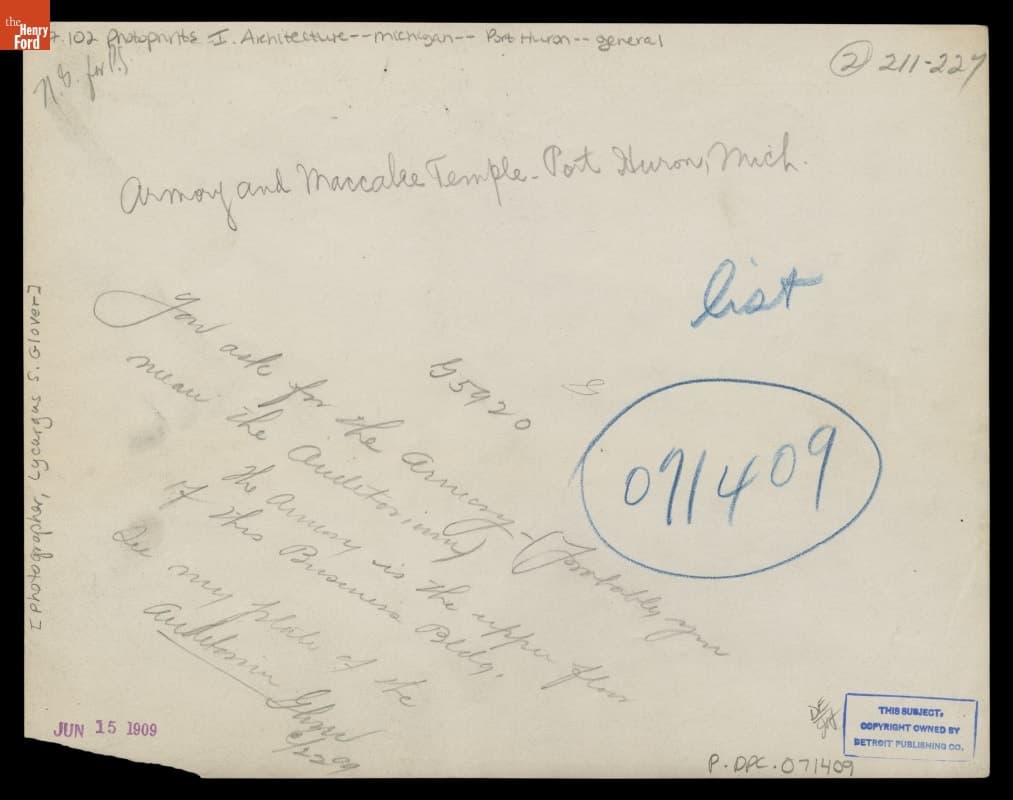 the
Henry
Ford
.102 Photoprints I. Architecture--michigan-- Port Huron--general
N.G. for P.S
② 211-227
Armory and Maccabee Temple - Port Huron, Mich.
list
You ask for the Armory - (Probably you
mean the Auditorium)
the Armory is the upper floor
of this Business Bldg.
See my plate of the
Auditorium Glover
G5920
G
071409
[Photographer, Lycurgus S. Glover]
JUN 15 1909
THIS SUBJECT,
COPYRIGHT OWNED BY
DETROIT PUBLISHING CO.
P.DPC.071409